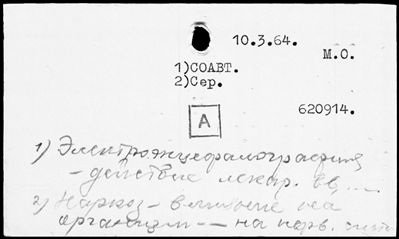 10.3.64.
М.О.
1)СОАВТ.
2)Сер.
620914.
А
1) Электроэнцефалография
- действие лекар. вв...
2) Наркоз - влияние на
организм — на нерв. сист